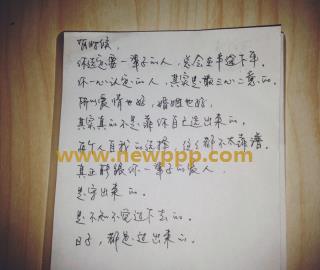 有时候，
你选定要一辈子的人，总会在半途下车。
你一心认定的人，其实是最三心二意的。
所以爱情也好，婚姻也好，
其实真的不是靠你自己选出来的。
在个人自我的选择，这个都不太靠谱。
www.newppp.com
真正能跟你一辈子的爱人，
是守出来的。
是不知不觉过下去的。
日子，都是过出来的。